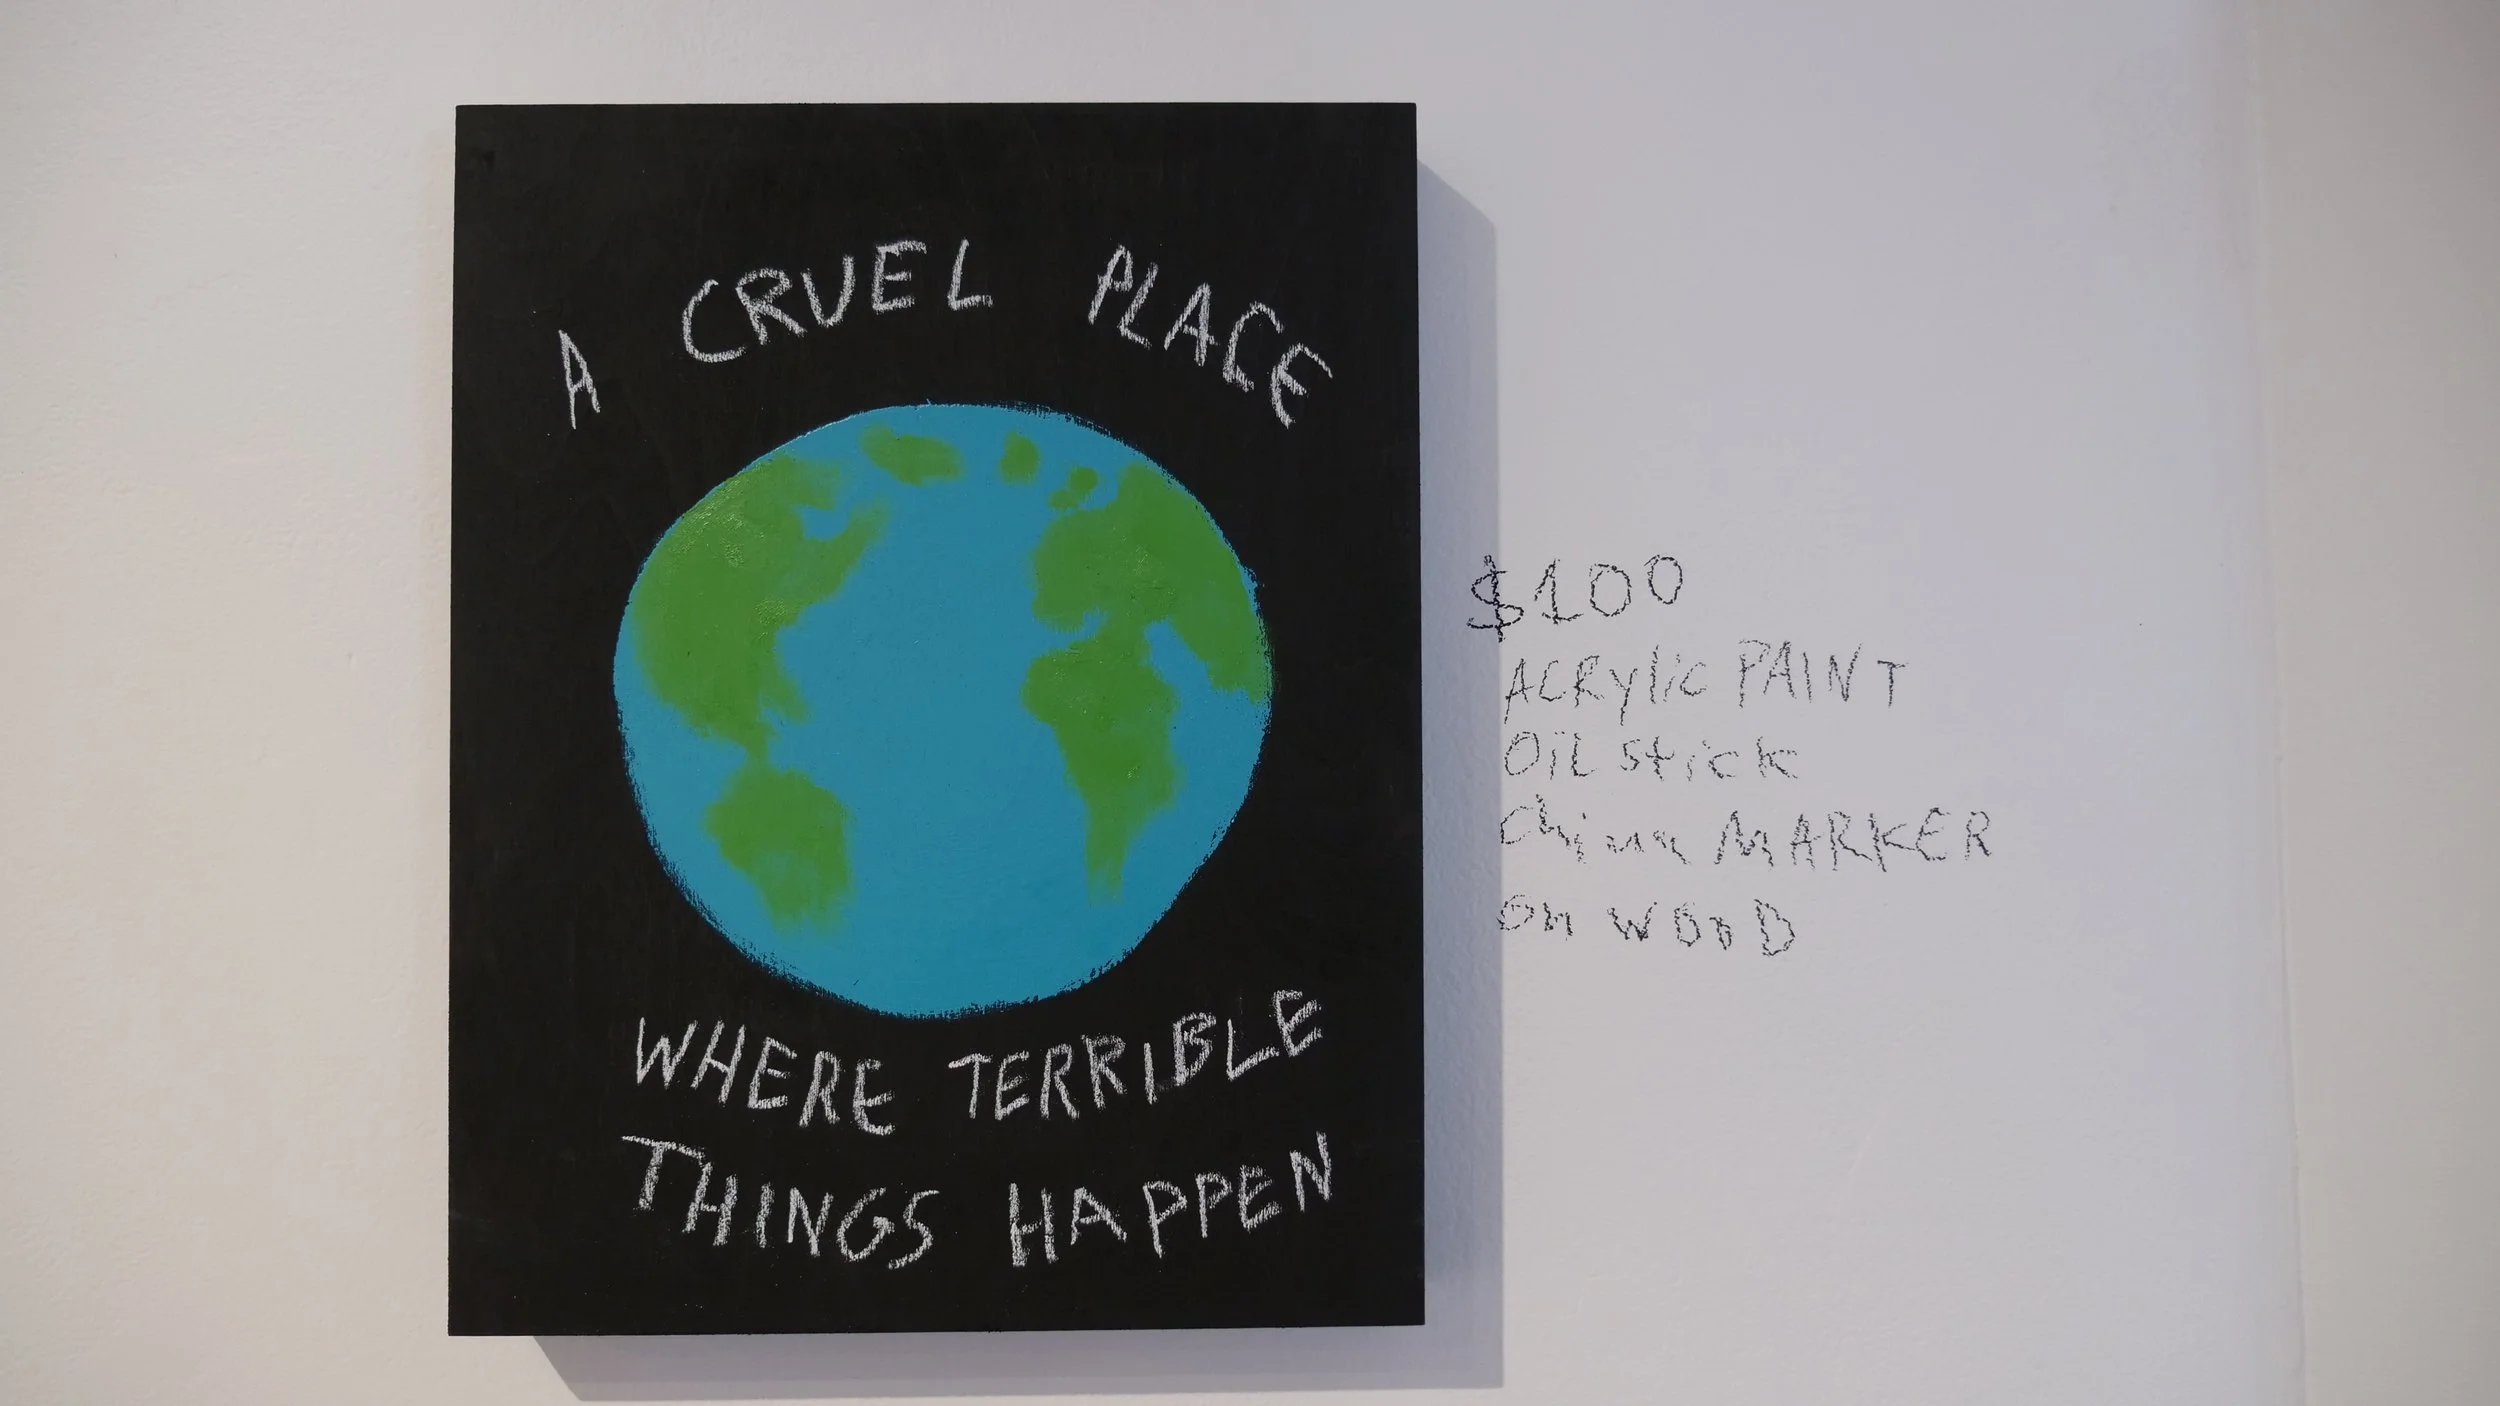 A CRUEL PLACE
WHERE TERRIBLE
THINGS HAPPEN
$100
ACRylic PAINT
OIL stick
MARKER
on WOOD